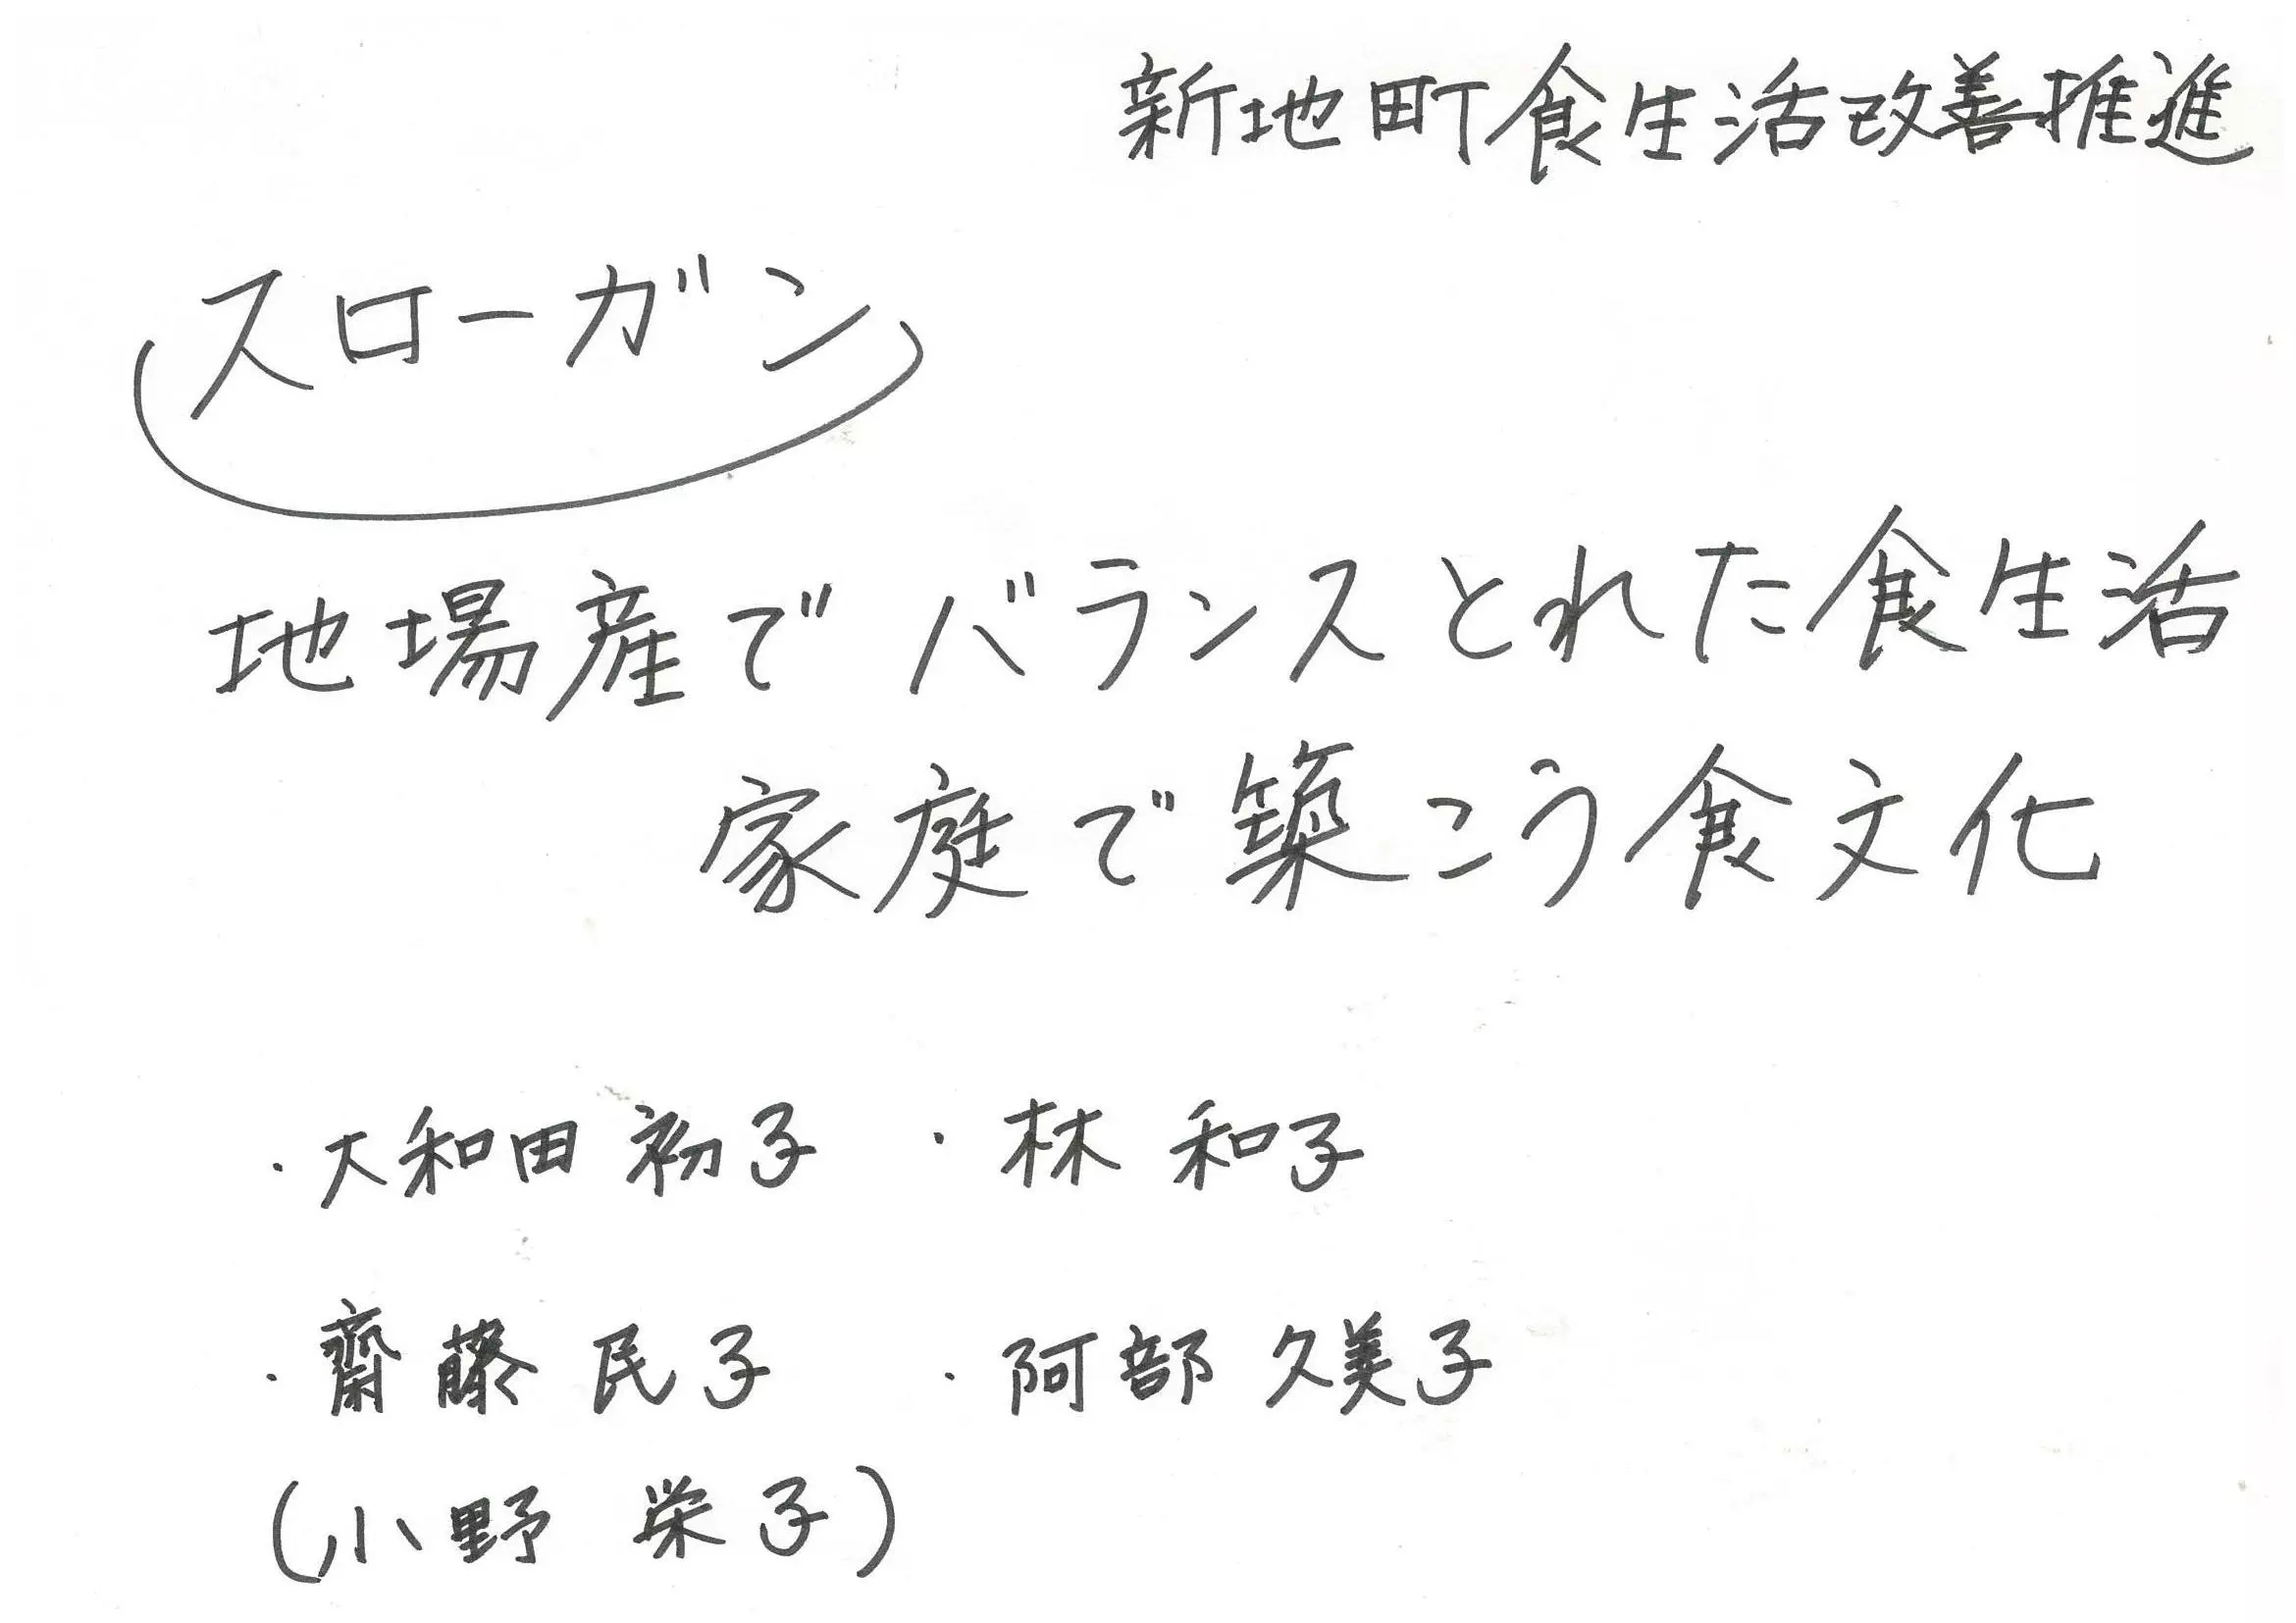 新地町食生活改善推進
スローガン
地場産でバランスとれた食生活
家庭で築こう食文化
・大和田 初子 ・林 和子
・齋藤 民子 ・阿部 久美子
(小野 栄子)